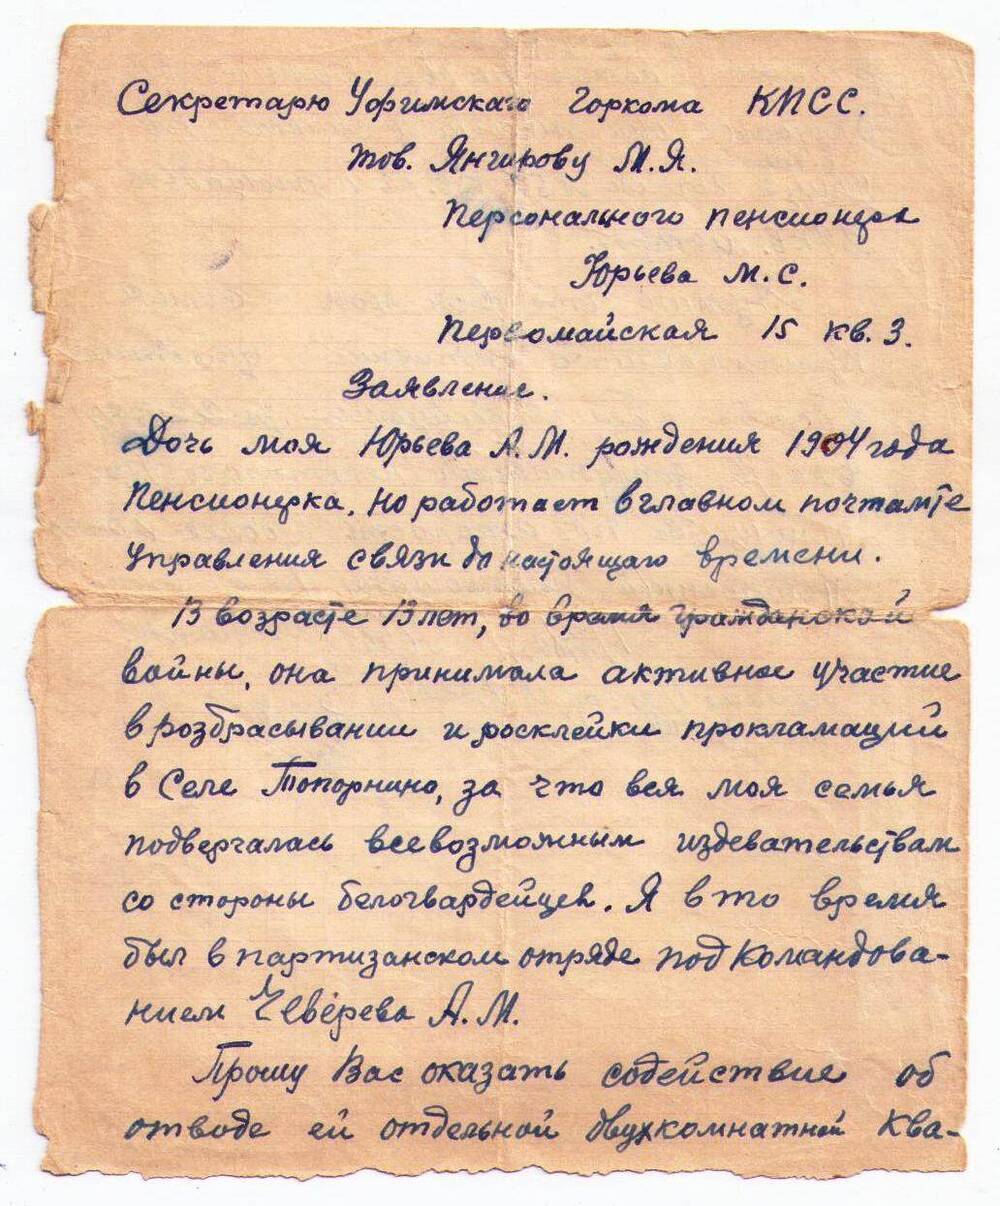 Секретарю Уфимского Горкома КПСС.
тов. Янгирову М.Я.
Персонального пенсионера
Юрьева М.С.
Первомайская 15 кв. 3.
Заявление.
Дочь моя Юрьева А.М. рождения 1904 года
Пенсионерка, но работает в главном почтамте
управления связи до настоящаго времени.
В возрасте 13 лет, во время гражданской
войны, она принимала активное участие
в розбрасывании и росклейки прокламаций
в Селе Топорнино, за что вся моя семья
подвергалась всевозможным издевательствам
со стороны белогвардейцев. Я в то время
был в партизанском отряде под Командова-
нием Чеверева А.М.
Прошу Вас оказать содействие об
отводе ей отдельной двухкомнатной Ква-